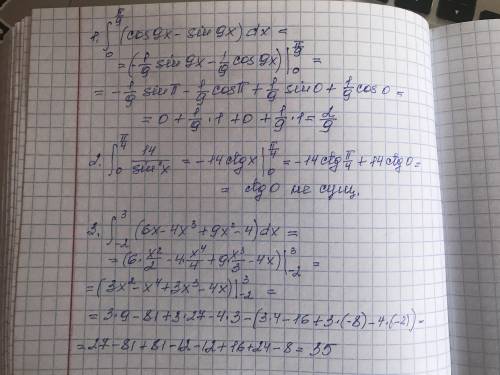 1. ∫₀^{π/9} (cos9x - sin9x)dx =
= (-1/9 sin9x - 1/9 cos9x) |₀^{π/9} =
= -1/9 sinπ - 1/9 cosπ + 1/9 sin0 + 1/9 cos0 =
= 0 + 1/9 · 1 + 0 + 1/9 · 1 = 2/9
2. ∫₀^{π/4} 14/sin²x = -14ctgx |₀^{π/4} = -14ctg π/4 + 14ctg0 =
= ctg0 не сущ.
3. ∫₋₂³ (6x - 4x³ + 9x² - 4)dx =
= (6· x²/2 - 4· x⁴/4 + 9 x³/3 - 4x) |₋₂³ =
= (3x² - x⁴ + 3x³ - 4x) |₋₂³ =
= 3·9 - 81 + 3·27 - 4·3 - (3·4 - 16 + 3·(-8) - 4·(-2)) =
= 27 - 81 + 81 - 12 - 12 + 16 + 24 - 8 = 35